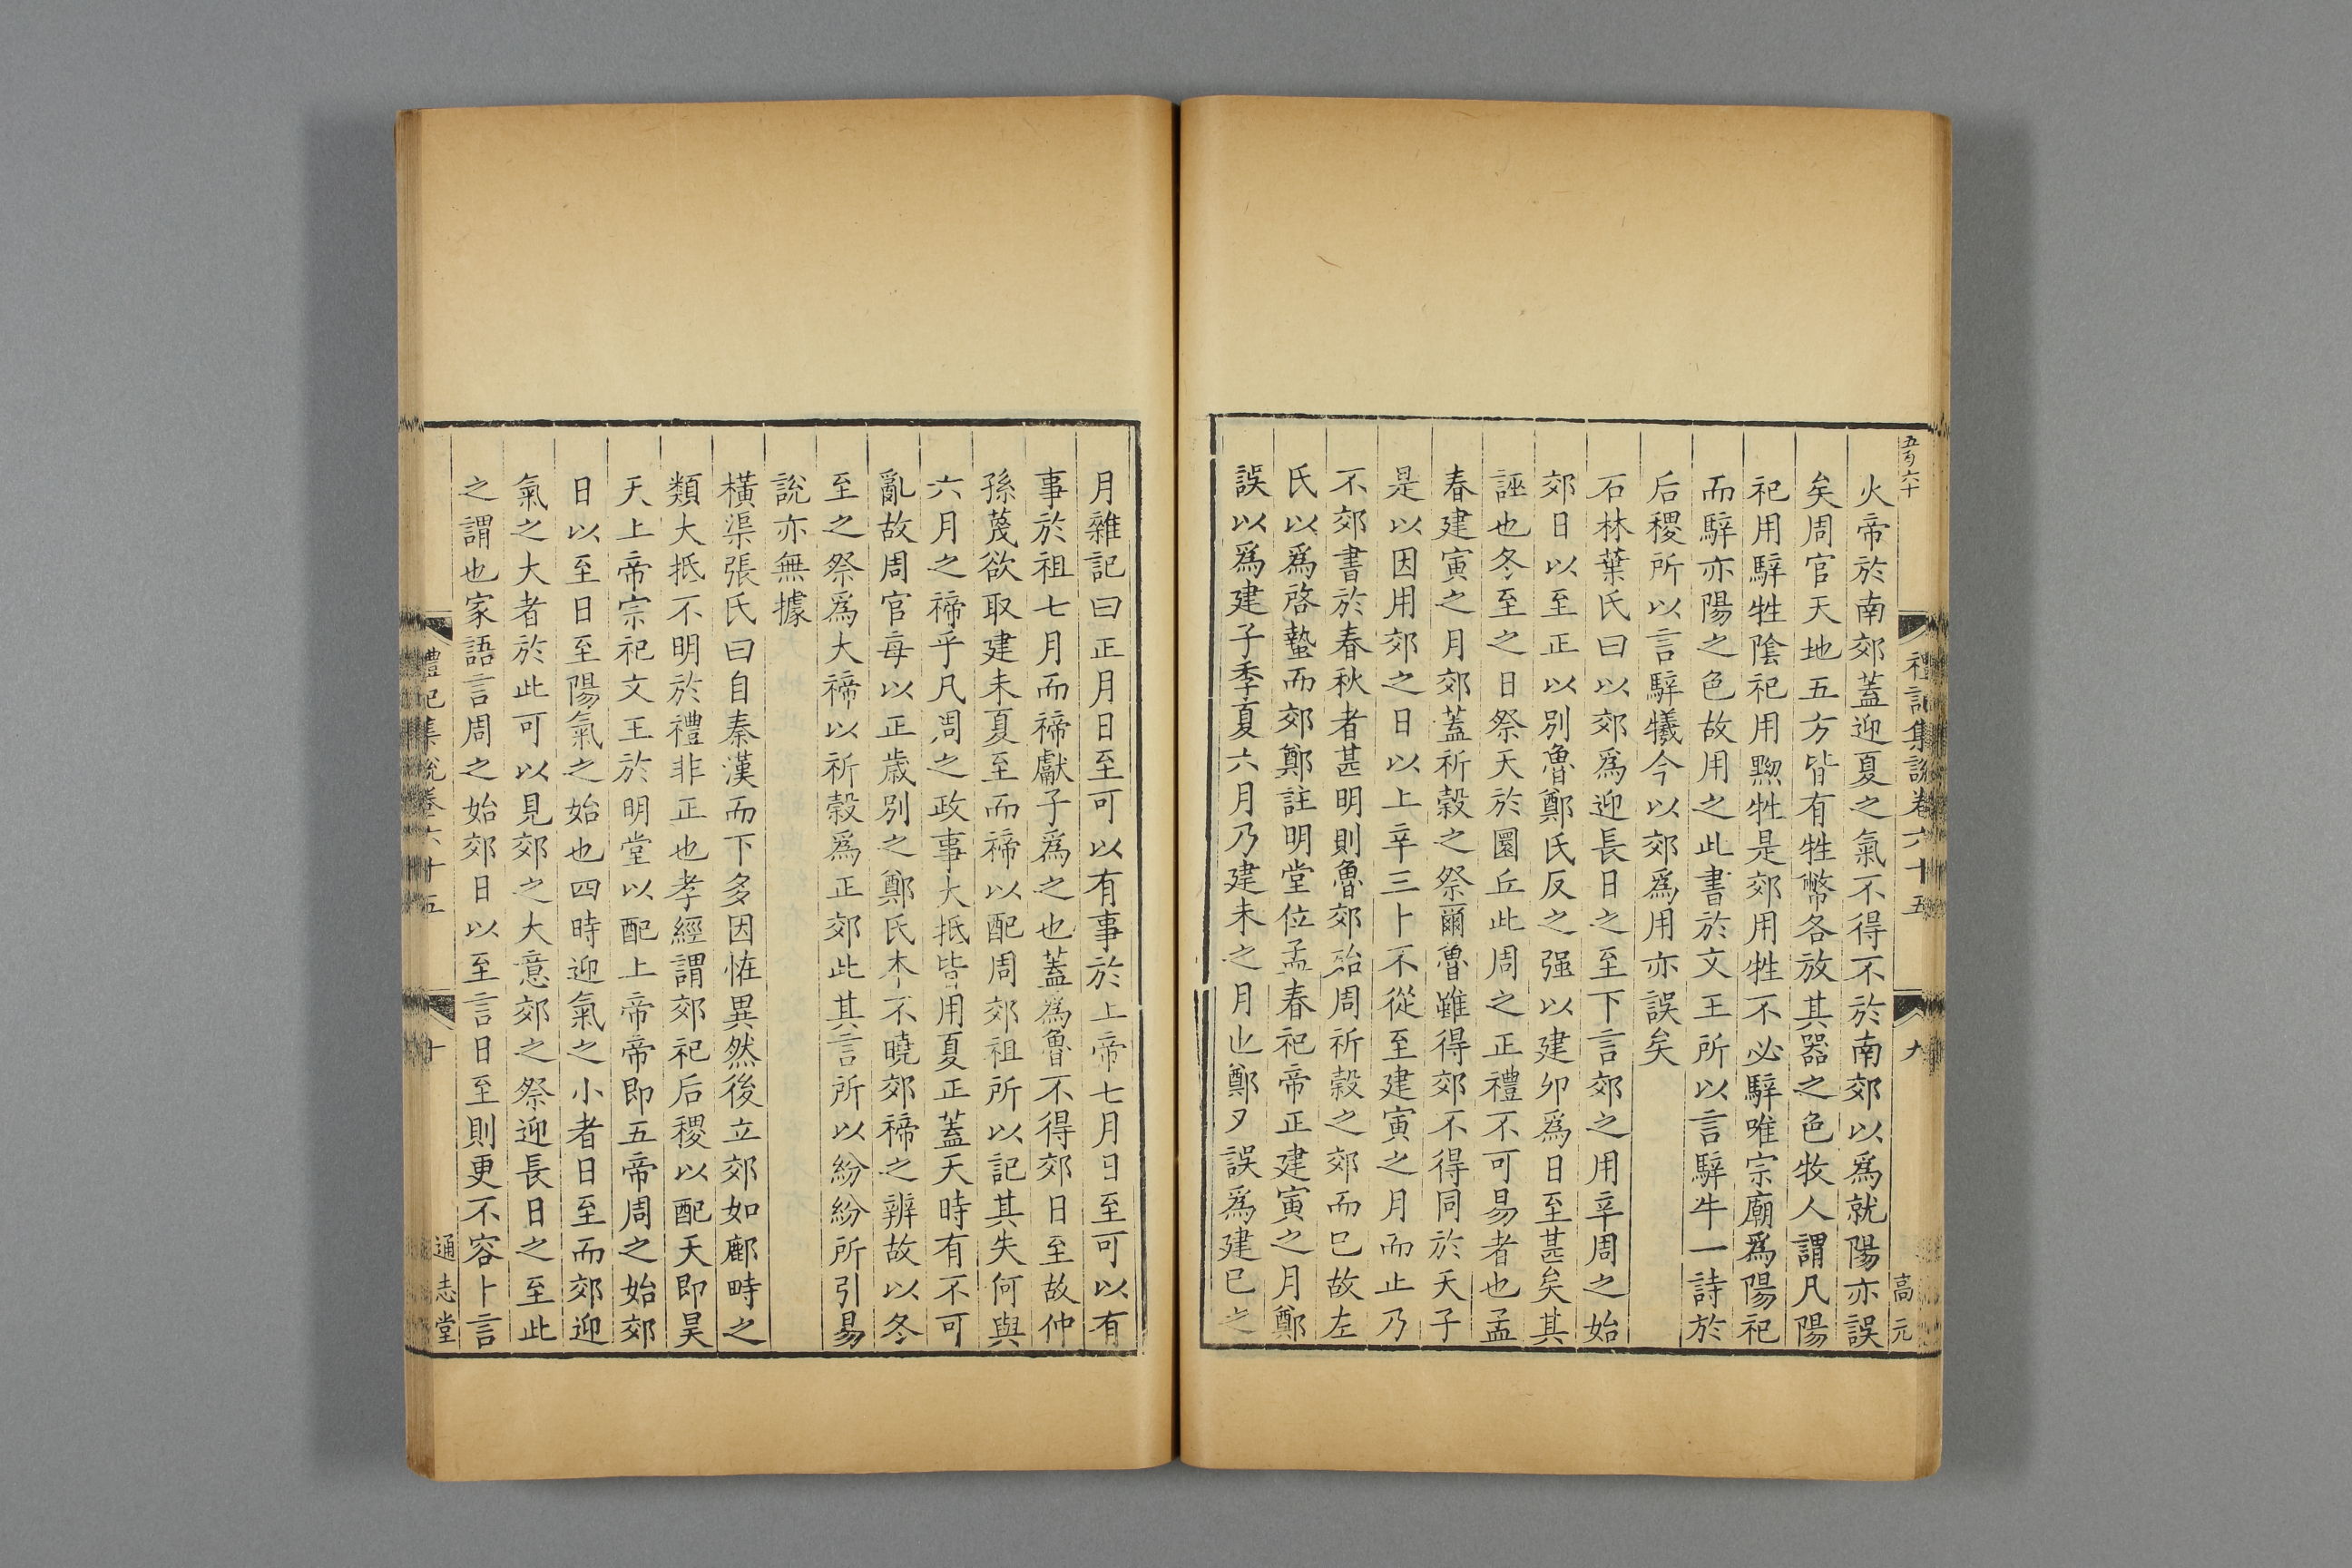 五百六十
禮記集說卷六十五
九
高元
火帝於南郊蓋迎夏之氣不得不於南郊以爲就陽亦誤
矣周官天地五方皆有牲幣各放其器之色牧人謂凡陽
祀用騂牲隂祀用黝牲是郊用牲不必騂唯宗廟爲陽祀
而騂亦陽之色故用之此書於文王所以言騂牛一詩於
后稷所以言騂犧今以郊爲用亦誤矣
石林葉氏曰以郊爲迎長日之至下言郊之用辛周之始
郊日以至正以別魯鄭氏反之强以建卯爲日至甚矣其
誣也冬至之日祭天於圜丘此周之正禮不可易者也孟
春建寅之月郊蓋祈穀之祭爾魯雖得郊不得同於天子
是以因用郊之日以上辛三卜不從至建寅之月而止乃
不郊書於春秋者甚明則魯郊殆周祈穀之郊而已故左
氏以爲啓蟄而郊鄭註明堂位孟春祀帝正建寅之月鄭
誤以爲建子季夏六月乃建未之月也鄭又誤爲建巳之
月雜記曰正月日至可以有事於上帝七月日至可以有
事於祖七月而禘獻子爲之也蓋爲魯不得郊日至故仲
孫蔑欲取建未夏至而禘以配周郊祖所以記其失何與
六月之禘乎凡周之政事大抵皆用夏正蓋天時有不可
亂故周官每以正歲別之鄭氏本不曉郊禘之辨故以冬
至之祭爲大禘以祈穀爲正郊此其言所以紛紛所引易
說亦無據
橫渠張氏曰自秦漢而下多因恠異然後立郊如鄜畤之
類大抵不明於禮非正也孝經謂郊祀后稷以配天即昊
天上帝宗祀文王於明堂以配上帝帝即五帝周之始郊
日以至日至陽氣之始也四時迎氣之小者日至而郊迎
氣之大者於此可以見郊之大意郊之祭迎長日之至此
之謂也家語言周之始郊日以至言日至則更不容卜言
禮記集說卷六十五
十
通志堂